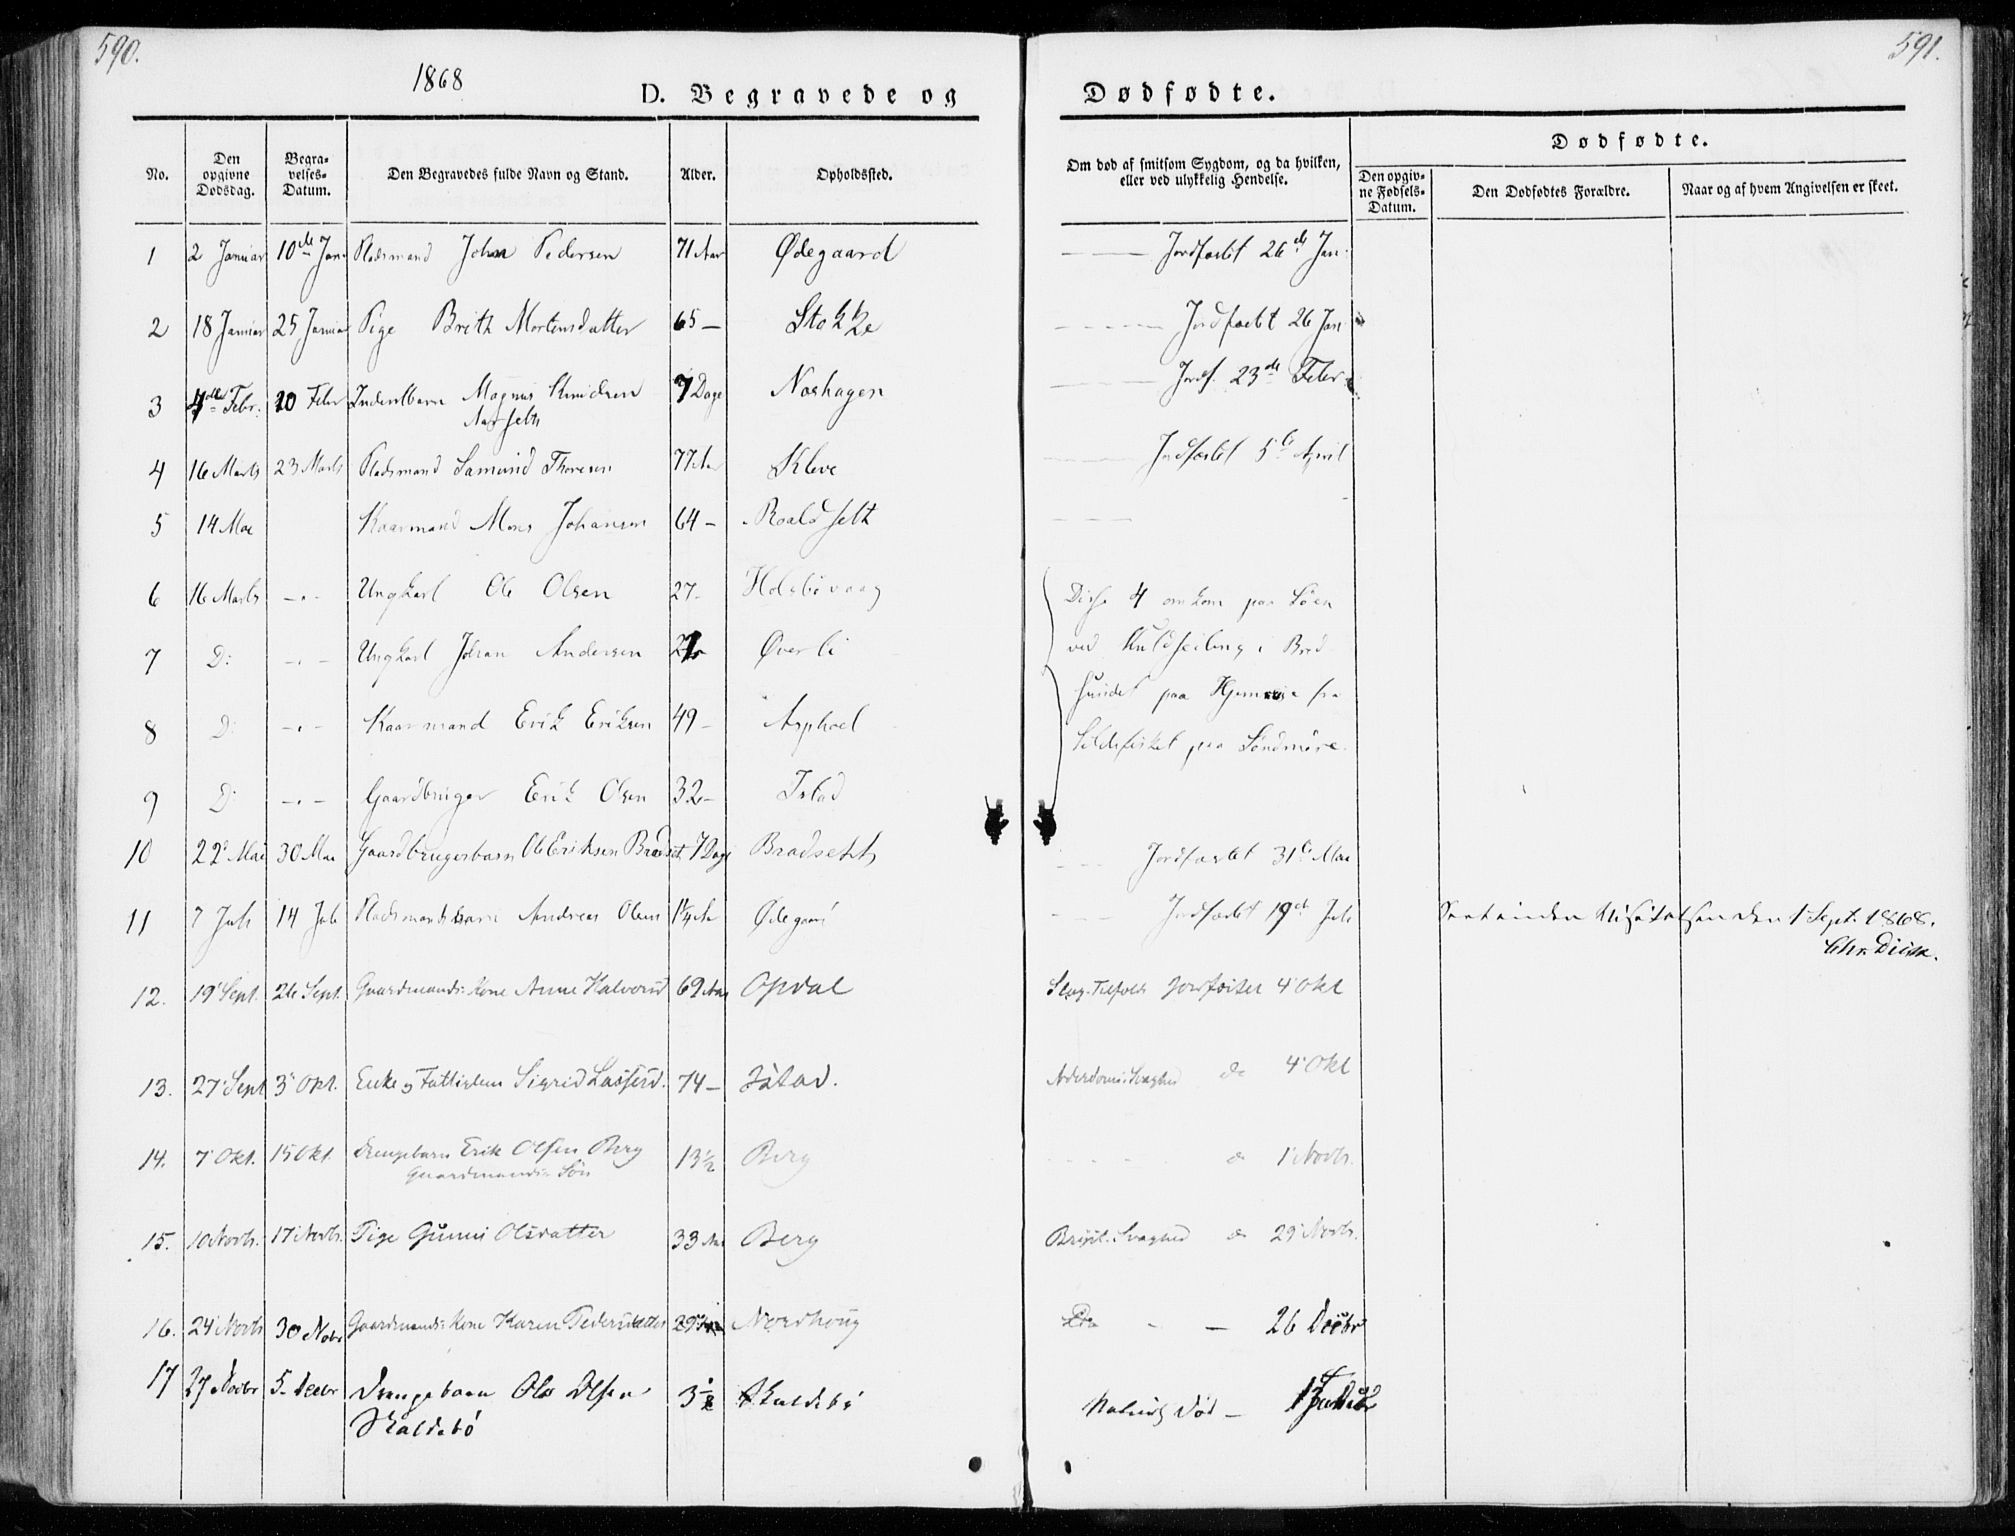 590.
591.
1868
D. Begravede og Dødfødte.
No.
Den opgivne Dødsdag.
Begravelses-Datum.
Den Begravedes fulde Navn og Stand.
Alder.
Opholdssted.
Om død af smitsom Sygdom, og da hvilken, eller ved ulykkelig Hendelse.
Dødfødte.
Den opgivne Fødsels-Datum.
Den Dødfødtes Forældre.
Naar og af hvem Angivelsen er skeet.
1 2 Januar 10de Jan Pladsmand John Pedersen 71 Aar Ødegaard Jordfæstet 26de Jan.
2 18 Januar 25 Januar Pige Brith Mortensdatter 65 – Stokke Jordfæstet 26 Jan
3 Febr. 10 Febr Magnus Knudsen 7 Dage Nashagen Jordf. 23de Febr.
4 16 Marts 23 Marts Pladsmand Samund Thoresen 77 Aar Kleve Jordfæstet 5te April
5 14 Mae Kaarmand Mons Johansen 64 – Roaldseth
6 16 Marts – " – Ungkarl Ole Olsen 27 – Holsbøvaag Disse 4 omkom paa Søen
7 D: – " – Ungkarl Johan Andersen Øverli ved Kuldseiling i Bred-
8 D: – " – Kaarmand Erik Eriksen 49 – Asphoel sundet paa Hjemreise fra
9 D: – " – Gaardbruger Erik Olsen 32 – Istad Sildefisket paa Søndmøre.
10 22 Mai 30 Mae Gaardbrugerbarn Ole Eriksen Bradset 7 Dage Bradseth Jordfæstet 31te Mae
11 7 Juli 14 Juli Pladsmandsbarn Andreas Olsen 1¼ Aar Ødegaard Jordfæstet 19de Juli
Seet under Visitatsen den 1 Sept. 1868.
12. 19 Sept. 26 Sept. Gaardmands-Kone Anne Halvorsd 69 Aar Opdal Slag-Tilfælde Jordfæstet 4 Okt
13. 27 Sept 3 Okt. Enke og Fattiglem Sigrid Lassesd. 74 – Istad. Alderdoms-Svaghed do 4 Okt
14. 7 Okt. 15 Okt. Drengebarn Erik Olsen Berg 13½ Berg do 1 Novbr.
Gaardmands Søn
15. 10 Novbr. 17 Novbr. Pige Gunni Olsdatter 33 Aar Berg Bryst-Svaghed do 29 Novbr.
16. 24 Novbr 30 Nobr Gaardmands-Kone Karen Pedersdatter Nordhoug – – 26 Decbr
17 27 Novbr 5 Decbr Drengebarn Ole Olsen 3½ Skaldebø Naturlig Død –
Skaldebø